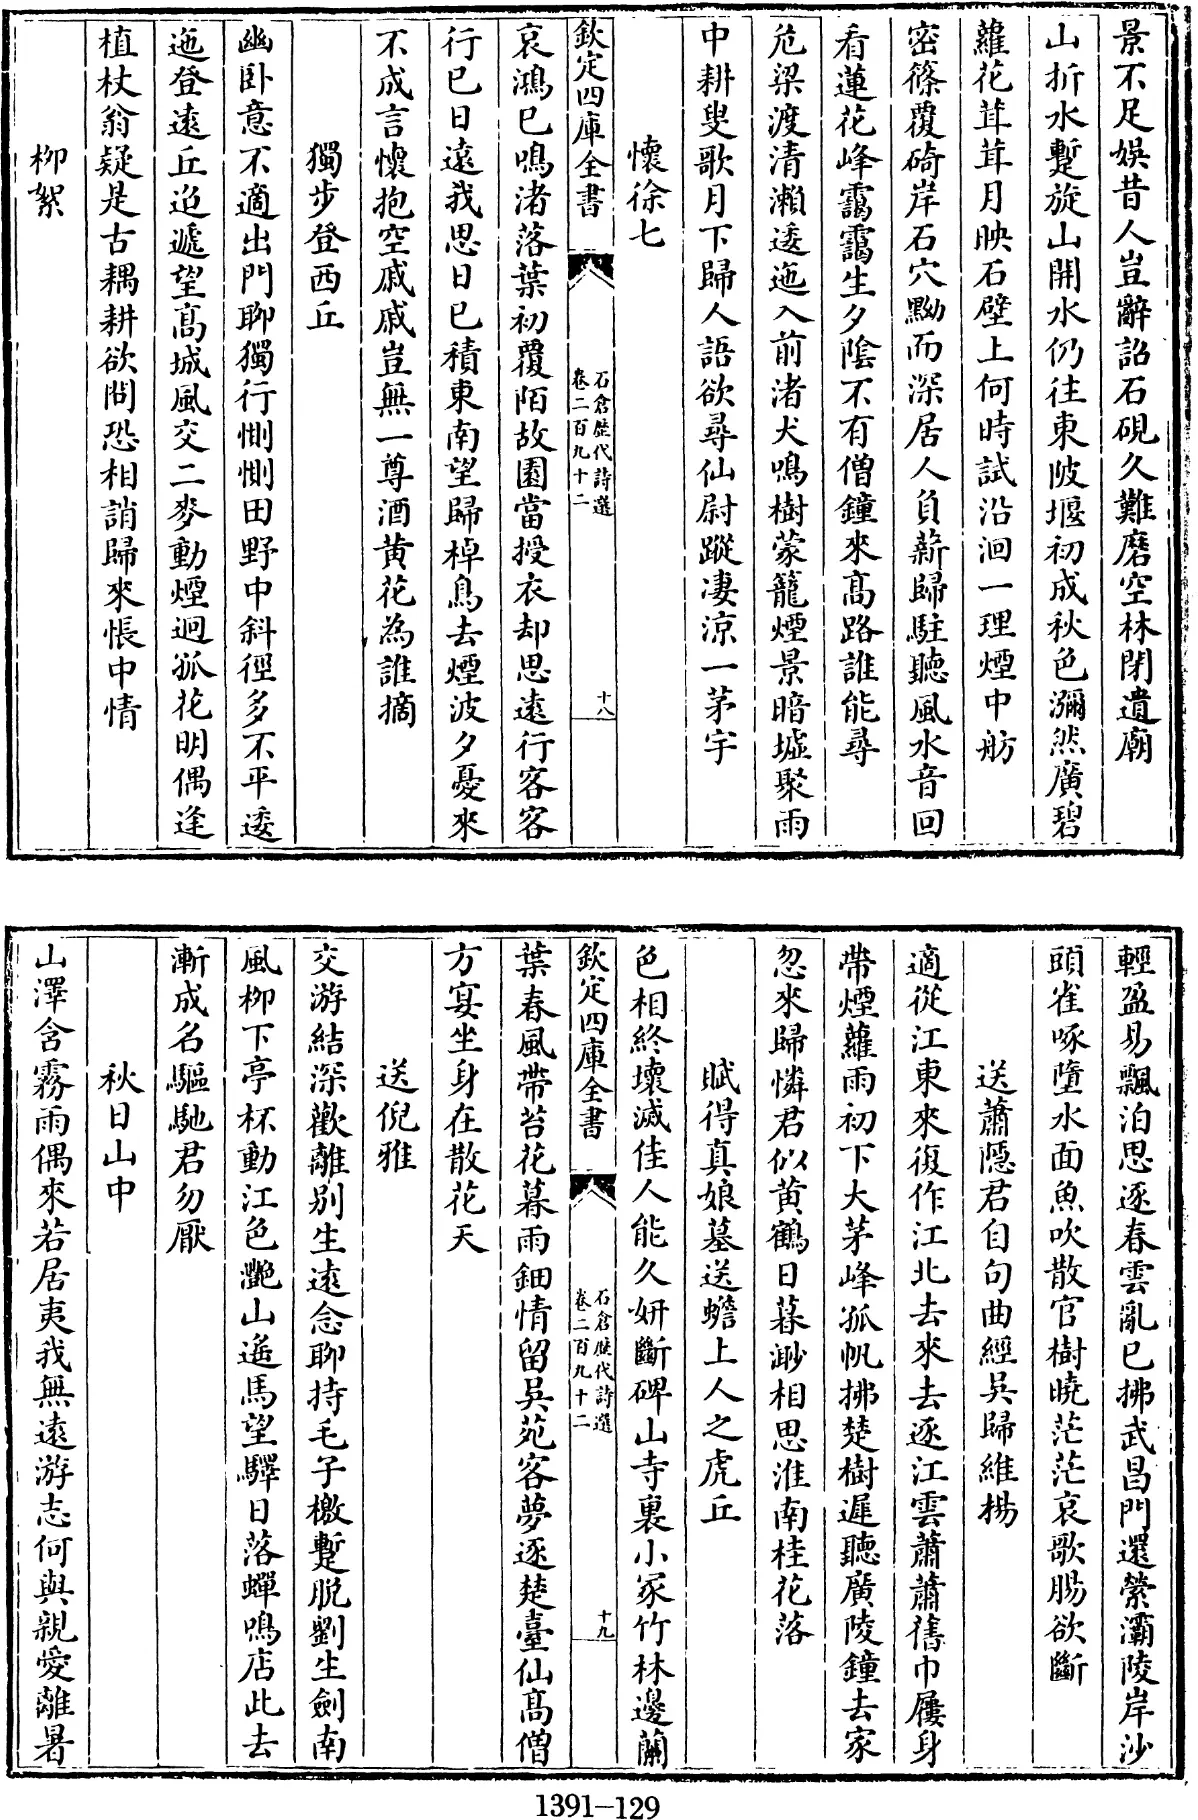 景不足娛昔人豈辭詔石硯久難磨空林閉遺廟
山折水蹔旋山開水仍往東陂堰初成秋色瀰然廣碧
蘿花茸茸月映石壁上何時試沿洄一理煙中舫
密篠覆碕岸石穴黝而深居人負薪歸駐聽風水音回
看蓮花峰靄靄生夕陰不有僧鐘來髙路誰能尋
危梁渡清瀨逶迤入前渚犬鳴樹蒙籠煙景暗墟聚雨
中耕叟歌月下歸人語欲尋仙尉蹤凄涼一茅宇
懷徐七
欽定四庫全書
石倉歴代詩選
卷二百九十二
十八
哀鴻已鳴渚落葉初覆陌故園當授衣却思遠行客客
行已日遠我思日已積東南望歸棹鳥去煙波夕憂來
不成言懷抱空戚戚豈無一尊酒黄花為誰摘
獨步登西丘
幽卧意不適出門聊獨行惻惻田野中斜徑多不平逶
迤登遠丘迢遞望髙城風交二麥動煙迥孤花明偶逢
植杖翁疑是古耦耕欲問恐相誚歸來悵中情
柳絮
輕盈易飄泊思逐春雲亂已拂武昌門還縈灞陵岸沙
頭雀啄墮水面魚吹散官樹曉茫茫哀歌腸欲斷
送蕭隱君自句曲經吳歸維楊
適從江東來復作江北去來去逐江雲蕭蕭舊巾屨身
帶煙蘿雨初下大茅峰孤帆拂楚樹遲聽廣陵鐘去家
忽來歸憐君似黄鶴日暮渺相思淮南桂花落
賦得真娘墓送蟾上人之虎丘
色相終壞滅佳人能久妍斷碑山寺裏小冢竹林邊蘭
欽定四庫全書
石倉歴代詩選
卷二百九十二
十九
葉春風帶苔花暮雨鈿情留吳苑客夢逐楚臺仙髙僧
方宴坐身在散花天
送倪雅
交游結深歡離别生遠念聊持毛子檄蹔脱劉生劍南
風柳下亭杯動江色灔山遙馬望驛日落蟬鳴店此去
漸成名驅馳君勿厭
秋日山中
山澤含霧雨偶來若居夷我無遠游志何與親愛離暑
1391-129